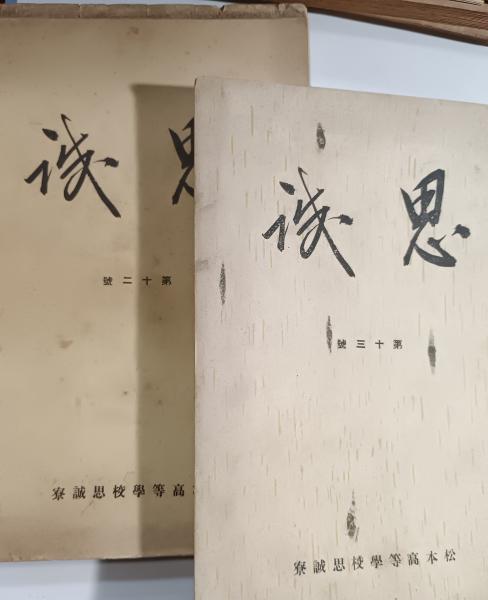 思誠
第十三號
松本高等學校思誠寮
誠
第十二號
高等學校思誠寮